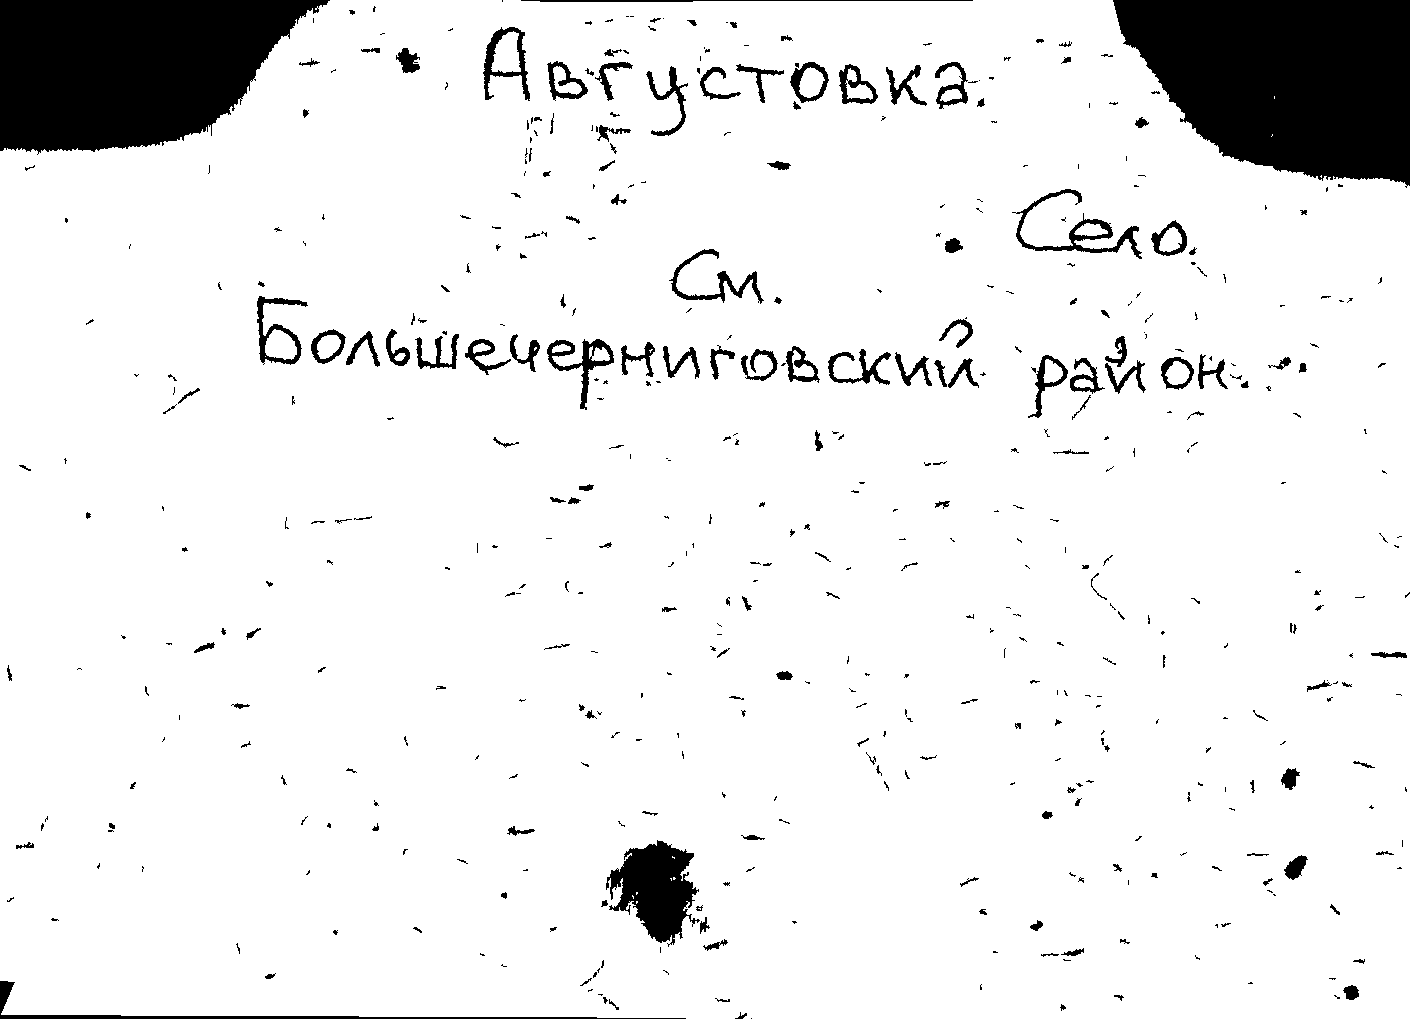 Августовка.
Село.
См.
Большечерниговский район.